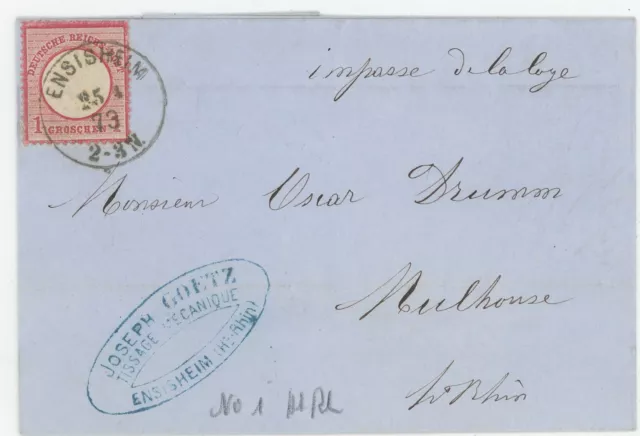 DEUTSCHE REICHS
1 GROSCHEN
ENSISHEIM
25 4
73
2-3 N.
impasse de la loge
Monsieur Oscar Drumm
Mulhouse
Ht Rhin
JOSEPH GOETZ
TISSAGE MÉCANIQUE
ENSISHEIM (Ht-Rhin)
No 1